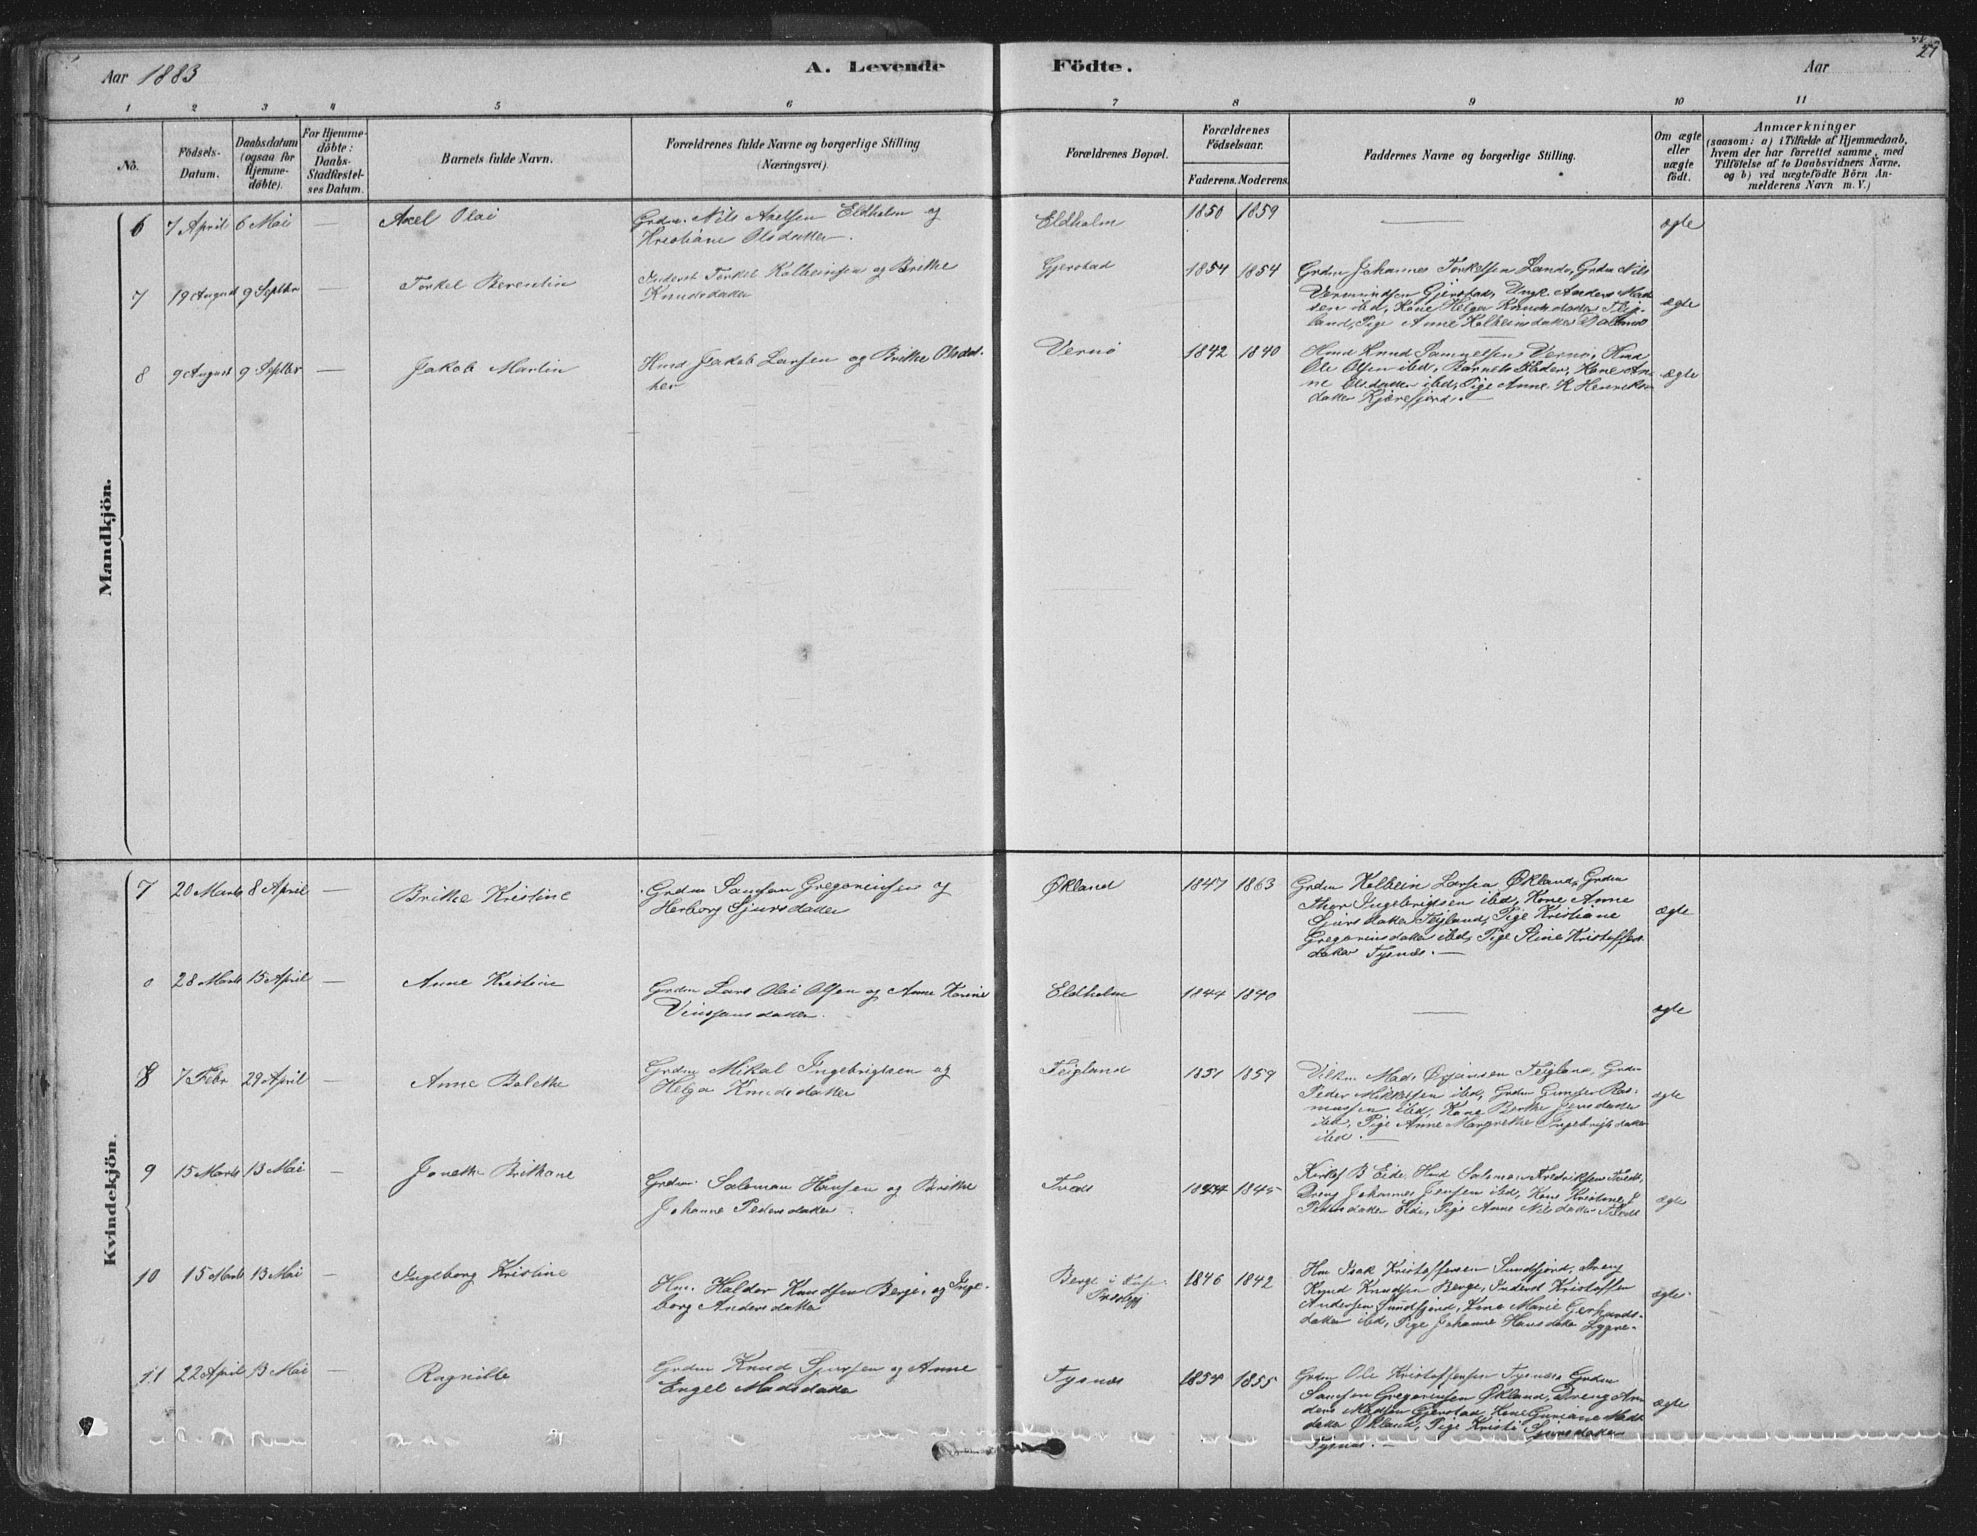 27
Aar 1883
A. Levende
Födte.
Aar
1 2 3 4 5 6 7 8 9 10 11
No.
Födsels-
Datum.
Daabsdatum
(ogsaa for
Hjemme-
döbte).
For Hjemme-
döbte:
Daabs-
Stadfæstel-
ses Datum.
Barnets fulde Navn.
Forældrenes fulde Navne og borgerlige Stilling
(Næringsvei).
Forældrenes Bopæl.
Forældrenes
Födselsaar.
Faderens. Moderens.
Faddernes Navne og borgerlige Stilling.
Om ægte
eller
uægte
födt.
Anmærkninger
(saasom: a) i Tilfælde af Hjemmedaab,
hvem der har forrettet samme, med
Tilföielse af to Daabsvidners Navne,
og b) ved uægtefödte Börn An-
melderens Navn m. V.)
Mandkjön.
6 7 April 6 Mai — Axel Olai
Grdm. Nils Axelsen Eldholm og
Kristiane Olsdatter.
Eldholm 1850 1859 — ægte
7 19 August 9 Septbr — Torkel Berentin
Inderst Torkel Kolbeinsen og Brithe
Knudsdatter
Gjerstad 1854 1854
Grdm Johannes Torkelsen Lande, Grdm Nils
Vermundsen Gjerstad, Ungk. Anders Mad-
sen ibd, Kone Helga Knudsdatter Teig-
land, Pige Anne Kolbeinsdatter
ægte
8 9 August 9 Septbr — Jakob Martin
Hmd Jakob Larsen og Brithe Olsdat-
ter
Vernø 1842 1840
Hmd Knud Samuelsen Vernø, Hmd
Ole Olsen ibd, Barnets Fader, Kone An-
ne Olsdatter ibd, Pige Anne K Henriks-
datter
ægte
Kvindekjön.
7 20 Marts 8 April — Brithe Kristine
Grdm Samson Gregoriussen og
Herborg Sjursdatter
Økland 1847 1863
Grdm Kolbein Larsen Økland, Grdm
Ingebrigtsen ibd, Kone Anne
Sjursdatter Teigland, Pige Kristiane
Gregoriusdatter ibd, Pige Stine Kristoffers-
datter Tysnæs. —
ægte
0 28 Marts 15 April — Anne Kristine
Grdm Lars Olai Olsen og Anne Karine
Vinsjansdatter.
Eldholm 1844 1840 — ægte
8 7 Febr 29 April — Anne Bolethe
Grdm Mikal Ingebrigtsen og
Helga Knudsdatter
Teigland 1851 1859
Mads Ørjansen Teigland, Grdm
Peder Mikkelsen ibd, Grdm Gunder Ras-
mussen ibd, Kone Berthe Jensdatter
ibd, Pige Anne Margrethe Ingebrigtsdatter
ibd. —
ægte
9 15 Marts 13 Mai — Jonetha Brithane
Grdm. Salomon Hansen og Brithe
Johanne Pedersdatter.
1844 1845
B Eide, Hmd Salomon Fredriksen
Dreng Johannes Jensen ibd, Kone Kristine
Pedersdatter Eide, Pige Anne Nilsdatter
ægte
10 15 Marts 13 Mai — Ingeborg Kristine
Hm. Haldor Knudsen Berge, og Inge-
borg Andersdatter
Berge i
1846 1842
Hm Isak Kristoffersen Sundfjord, Dreng
Knud Knudsen Berge, Inderst Kristoffer
Andersen Sundfjord, Kone Marie Gerhards-
datter ibd, Pige Johanne Hansdatter Lygre-
ægte
11 22 April 13 Mai — Ragnilde
Grdm Knud Sjursen og Anne
Engel Madsdatter
Tysnæs 1854 1855
Grdm Ole Kristoffersen Tysnæs, Grdm
Samson Gregoriussen Økland, Dreng An-
ders Madsen Gjerstad, Kone Guriane Mads-
datter Økland, Pige Kristi Sjursdatter
Tysnæs. —
ægte